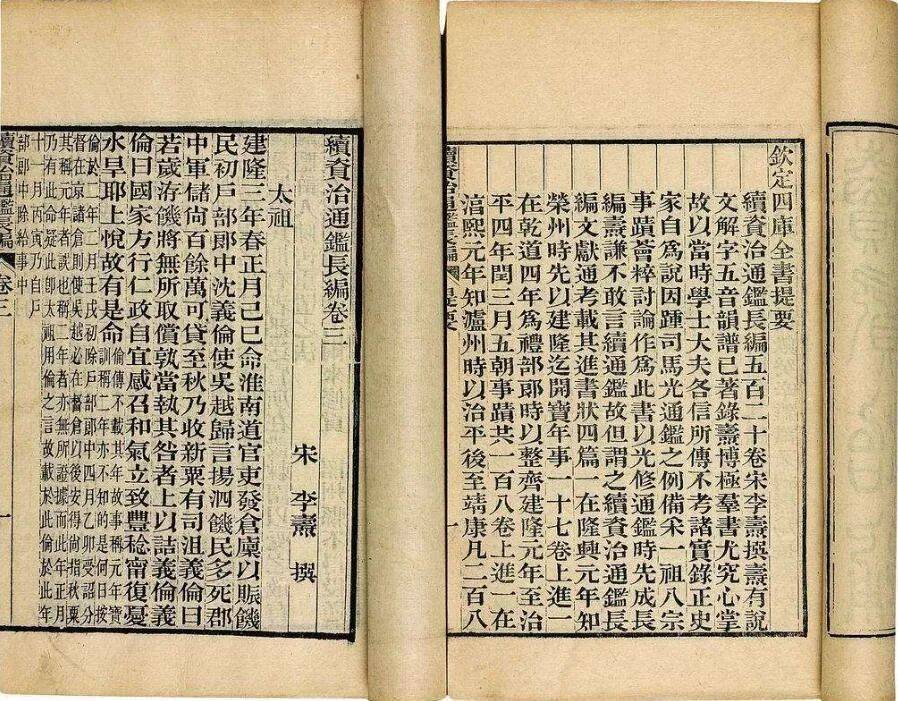 欽定四庫全書提要
續資治通鑑長編五百二十卷宋李燾撰燾有說
文解字五音韻譜已著錄燾博極羣書尤究心掌
故以當時學士大夫各信所傳不考諸實錄正史
家自爲說因踵司馬光通鑑之例備采一祖八宗
事蹟薈粹討論作爲此書以光修通鑑時先成長
編燾謙不敢言續通鑑故但謂之續資治通鑑長
編文獻通考載其進書狀四篇一在隆興元年知
榮州時先以建隆迄開寶年事一十七卷上進一
在乾道四年爲禮部郎時以整齊建隆元年至治
平四年閏三月五朝事蹟共一百八卷上進一在
湻熙元年知瀘州時以治平後至靖康凡二百八
續資治通鑑長編 提要 一
續資治通鑑長編卷三
宋 李燾 撰
太祖
建隆三年春正月己巳命淮南道官吏發倉廩以賑饑
民初戶部郎中沈義倫使吳越歸言揚泗饑民多死郡
中軍儲尚百餘萬可貸至秋乃收新粟有司沮義倫曰
若歲洊饑將無所取償孰當執其咎者上以詰義倫義
倫曰國家方行仁政自宜感召和氣立致豐稔甯復憂
水旱耶上悅故有是命
倫傳不載其年故事稱元年寶
訓稱二年亦不知的是何日按
倫於二年二月壬戌初除戶部郎中四月乙卯受詔分
督在京諸倉則使吳越必在督倉以後安得尚指秋粟
其稱元年者誤也稱二年者亦無所證據而此年正月
乃有此命疑此即太祖用倫之言故載於此倫於此年
十一月丙寅乃自戶
部郎中除給事中
續資治通鑑長編 卷三 一